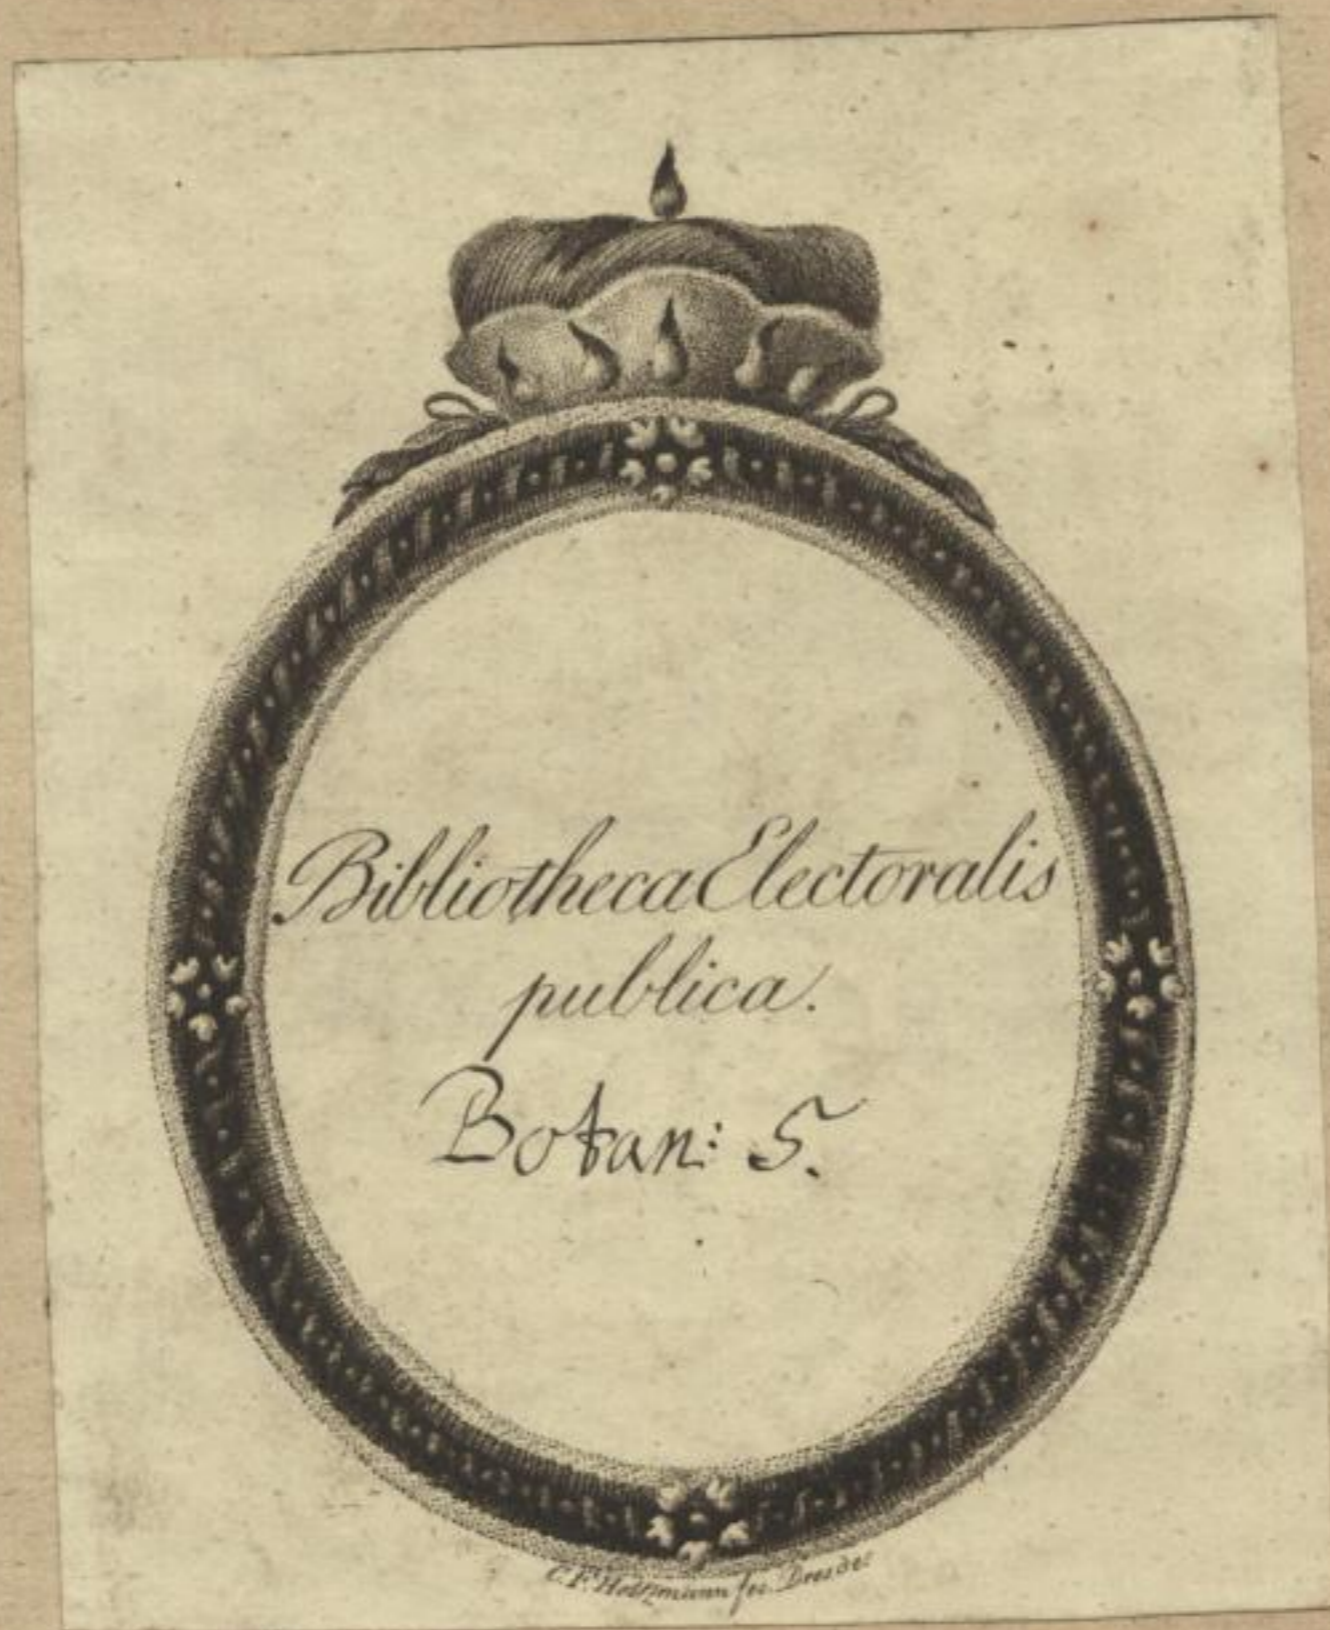 Bibliotheca Electoralis
publica.
Botan: 5.
C. F. Holtzmann fec. Dresde